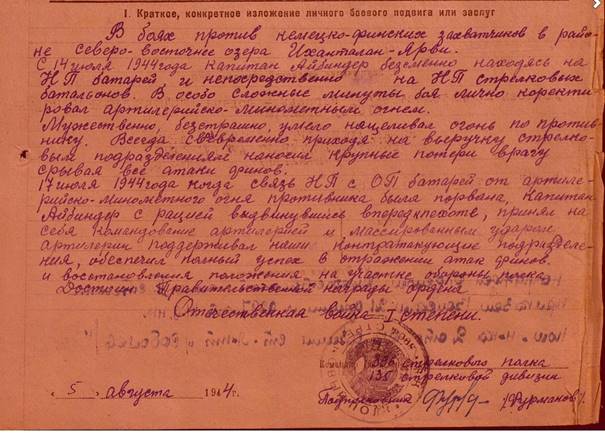 I. Краткое, конкретное изложение личного боевого подвига или заслуг
В боях против немецко-финских захватчиков в райо-
не северо-восточнее озера Ихантала-Ярви.
С 14 июля 1944 года капитан Айбиндер безсменно находясь на
НП батарей и непосредственно на НП стрелковых
батальонов. В особо сложные минуты боя лично коректи
ровал артилерийско-минометным огнем.
Мужественно, безстрашно, умело нацеливал огонь по против-
нику. Всегда своевременно приходя на выручку стрелко-
вым подразделениям наносил крупные потери врагу
срывая все атаки финов.
17 июля 1944 года когда связь НП с ОП батарей от артиле-
рийско-минометного огня противника была порвана, капитан
Айбиндер с рацией выдвинувшись вперед к пехоте, принял на
себя командование артилерией и массированным ударом
артилерии поддерживал наши контратакующие подразделе-
ния, обеспечил полный успех в отражении атак финов.
и восстановления положения на участке обороны полка.
Достоин Правительственной награды ордена
Отечественная война I степени.
Командир 396 стрелкового полка
стрелковой дивизии
"5" августа 1944 г. Подполковник Фурманов